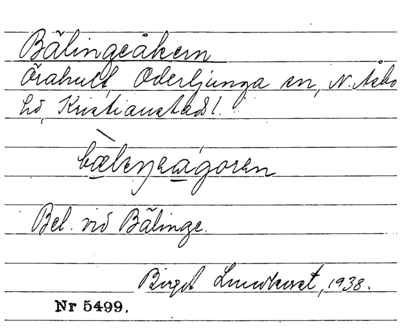 Bälingeåkern
Örahult, Oderljunga sn, N. Åsbo
hd, Kristianstads l.
bæleŋeagoren
Bel. vid Bälinge.
Birgit Lundkvist, 1938.
Nr 5499.